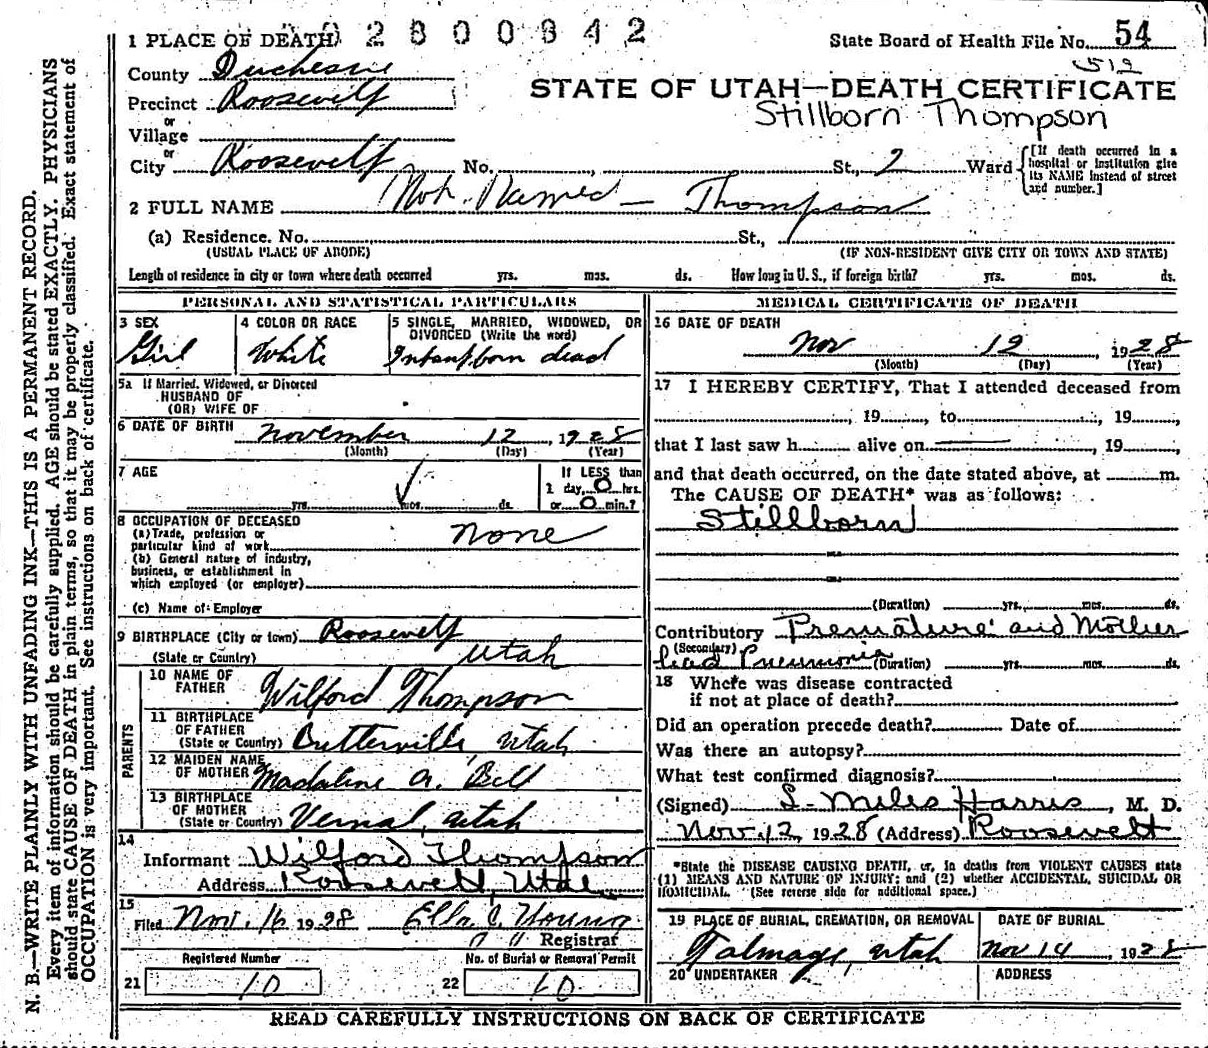 2800842
1 PLACE OF DEATH
State Board of Health File No. 54
512
County Duchesne
STATE OF UTAH—DEATH CERTIFICATE
Precinct Roosevelt
Stillborn Thompson
or
Village
or
City Roosevelt No. , St., 2 Ward
[If death occurred in a hospital or institution give its NAME instead of street and number.]
2 FULL NAME Not Named - Thompson
(a) Residence. No. St.,
(USUAL PLACE OF ABODE) (IF NON-RESIDENT GIVE CITY OR TOWN AND STATE)
Length of residence in city or town where death occurred yrs. mos. ds. How long in U. S., if foreign birth? yrs. mos. ds.
PERSONAL AND STATISTICAL PARTICULARS
3 SEX
Girl
4 COLOR OR RACE
White
5 SINGLE, MARRIED, WIDOWED, OR
DIVORCED (Write the word)
Infant born dead
5a If Married, Widowed, or Divorced
HUSBAND OF
(OR) WIFE OF
6 DATE OF BIRTH November 12, 1928
(Month) (Day) (Year)
7 AGE
yrs. mos. ds.
If LESS than
1 day, 0 hrs.
or 0 min.?
8 OCCUPATION OF DECEASED
(a) Trade, profession or
particular kind of work None
(b) General nature of industry,
business, or establishment in
which employed (or employer)
(c) Name of Employer
9 BIRTHPLACE (City or town) Roosevelt
(State or Country) Utah
PARENTS
10 NAME OF
FATHER Wilford Thompson
11 BIRTHPLACE
OF FATHER
(State or Country) Butterville, Utah
12 MAIDEN NAME
OF MOTHER Madaline A. Bell
13 BIRTHPLACE
OF MOTHER
(State or Country) Vernal, Utah
14
Informant Wilford Thompson
Address Roosevelt, Utah
15
Filed Nov. 16 1928 Ella C. Young
Registrar
Registered Number
21 10
No. of Burial or Removal Permit
22 10
MEDICAL CERTIFICATE OF DEATH
16 DATE OF DEATH
Nov 12, 1928
(Month) (Day) (Year)
17 I HEREBY CERTIFY, That I attended deceased from
, 19 , to , 19 ,
that I last saw h alive on , 19
and that death occurred, on the date stated above, at m.
The CAUSE OF DEATH* was as follows:
Stillborn
(Duration) yrs. mos. ds.
Contributory Premature and Mother
(Secondary)
had Pneumonia (Duration) yrs. mos. ds.
18 Where was disease contracted
if not at place of death?
Did an operation precede death? Date of
Was there an autopsy?
What test confirmed diagnosis?
(Signed) L. Miles Harris, M. D.
Nov. 12, 1928 (Address) Roosevelt
*State the DISEASE CAUSING DEATH, or, in deaths from VIOLENT CAUSES state
(1) MEANS AND NATURE OF INJURY; and (2) whether ACCIDENTAL, SUICIDAL OR
HOMICIDAL. (See reverse side for additional space.)
19 PLACE OF BURIAL, CREMATION, OR REMOVAL
Talmage, Utah
DATE OF BURIAL
Nov 14 1928
20 UNDERTAKER
ADDRESS
READ CAREFULLY INSTRUCTIONS ON BACK OF CERTIFICATE
N. B.—WRITE PLAINLY WITH UNFADING INK—THIS IS A PERMANENT RECORD.
Every item of information should be carefully supplied. AGE should be stated EXACTLY. PHYSICIANS
should state CAUSE OF DEATH in plain terms, so that it may be properly classified. Exact statement of
OCCUPATION is very important. See instructions on back of certificate.